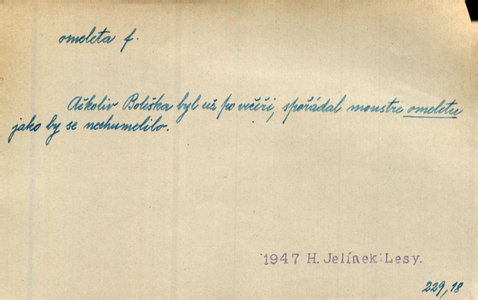 omeleta f.
Ačkoliv Boliška byl už po večeři, spořádal monstre omeletu
jako by se nechumelilo.
1947 H. Jelínek: Lesy.
229, 18